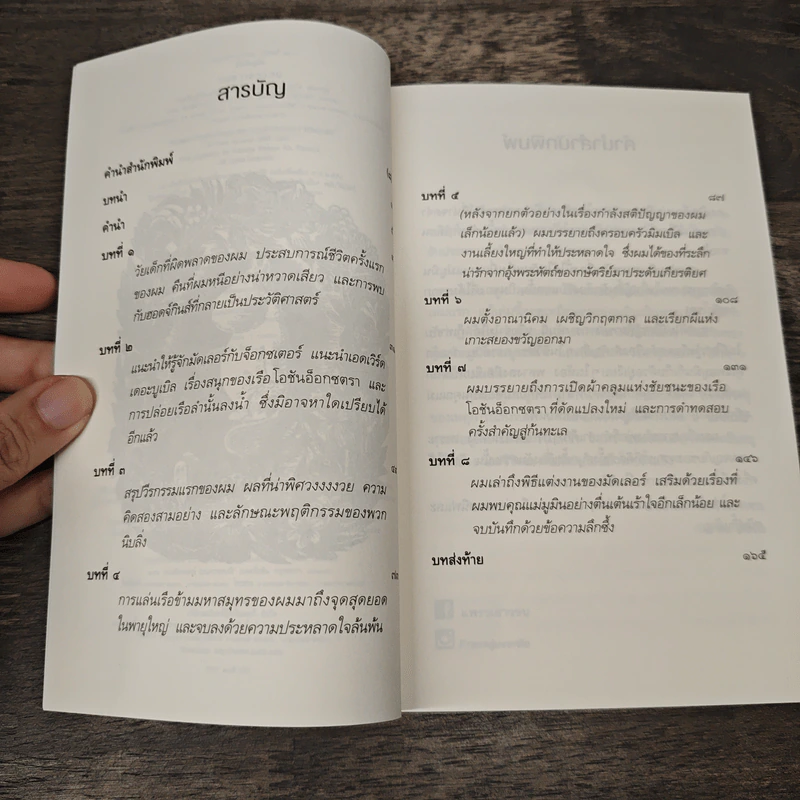 สารบัญ
คำนำสำนักพิมพ์
บทนำ
คำนำ
บทที่ ๑
วัยเด็กที่ผิดพลาดของผม ประสบการณ์ชีวิตครั้งแรก
ของผม คืนที่ผมหนีอย่างน่าหวาดเสียว และการพบ
กับฮอดจ์กินส์ที่กลายเป็นประวัติศาสตร์
บทที่ ๒
แนะนำให้รู้จักมัดเลอร์กับจ็อกซเตอร์ แนะนำเอดเวิร์ด
เดอะบูเบิล เรื่องสนุกของเรือโอชันอ็อกซตรา และ
การปล่อยเรือลำนั้นลงน้ำ ซึ่งมิอาจหาใดเปรียบได้
อีกแล้ว
บทที่ ๓
สรุปวีรกรรมแรกของผม ผลที่น่าพิศวงงงงวย ความ
คิดสองสามอย่าง และลักษณะพฤติกรรมของพวก
นิบลิ่ง
บทที่ ๔
การแล่นเรือข้ามมหาสมุทรของผมมาถึงจุดสุดยอด
ในพายุใหญ่ และจบลงด้วยความประหลาดใจล้นพ้น
บทที่ ๕ ๘๗
(หลังจากยกตัวอย่างในเรื่องกำลังสติปัญญาของผม
เล็กน้อยแล้ว) ผมบรรยายถึงครอบครัวมิมเบิล และ
งานเลี้ยงใหญ่ที่ทำให้ประหลาดใจ ซึ่งผมได้ของที่ระลึก
น่ารักจากอุ้งพระหัตถ์ของกษัตริย์มาประดับเกียรติยศ
บทที่ ๖ ๑๐๘
ผมตั้งอาณานิคม เผชิญวิกฤตกาล และเรียกผีแห่ง
เกาะสยองขวัญออกมา
บทที่ ๗ ๑๓๑
ผมบรรยายถึงการเปิดผ้าคลุมแห่งชัยชนะของเรือ
โอชันอ็อกซตรา ที่ดัดแปลงใหม่ และการดำทดสอบ
ครั้งสำคัญสู่ก้นทะเล
บทที่ ๘ ๑๔๖
ผมเล่าถึงพิธีแต่งงานของมัดเลอร์ เสริมด้วยเรื่องที่
ผมพบคุณแม่มูมินอย่างตื่นเต้นเร้าใจอีกเล็กน้อย และ
จบบันทึกด้วยข้อความลึกซึ้ง
บทส่งท้าย ๑๖๕